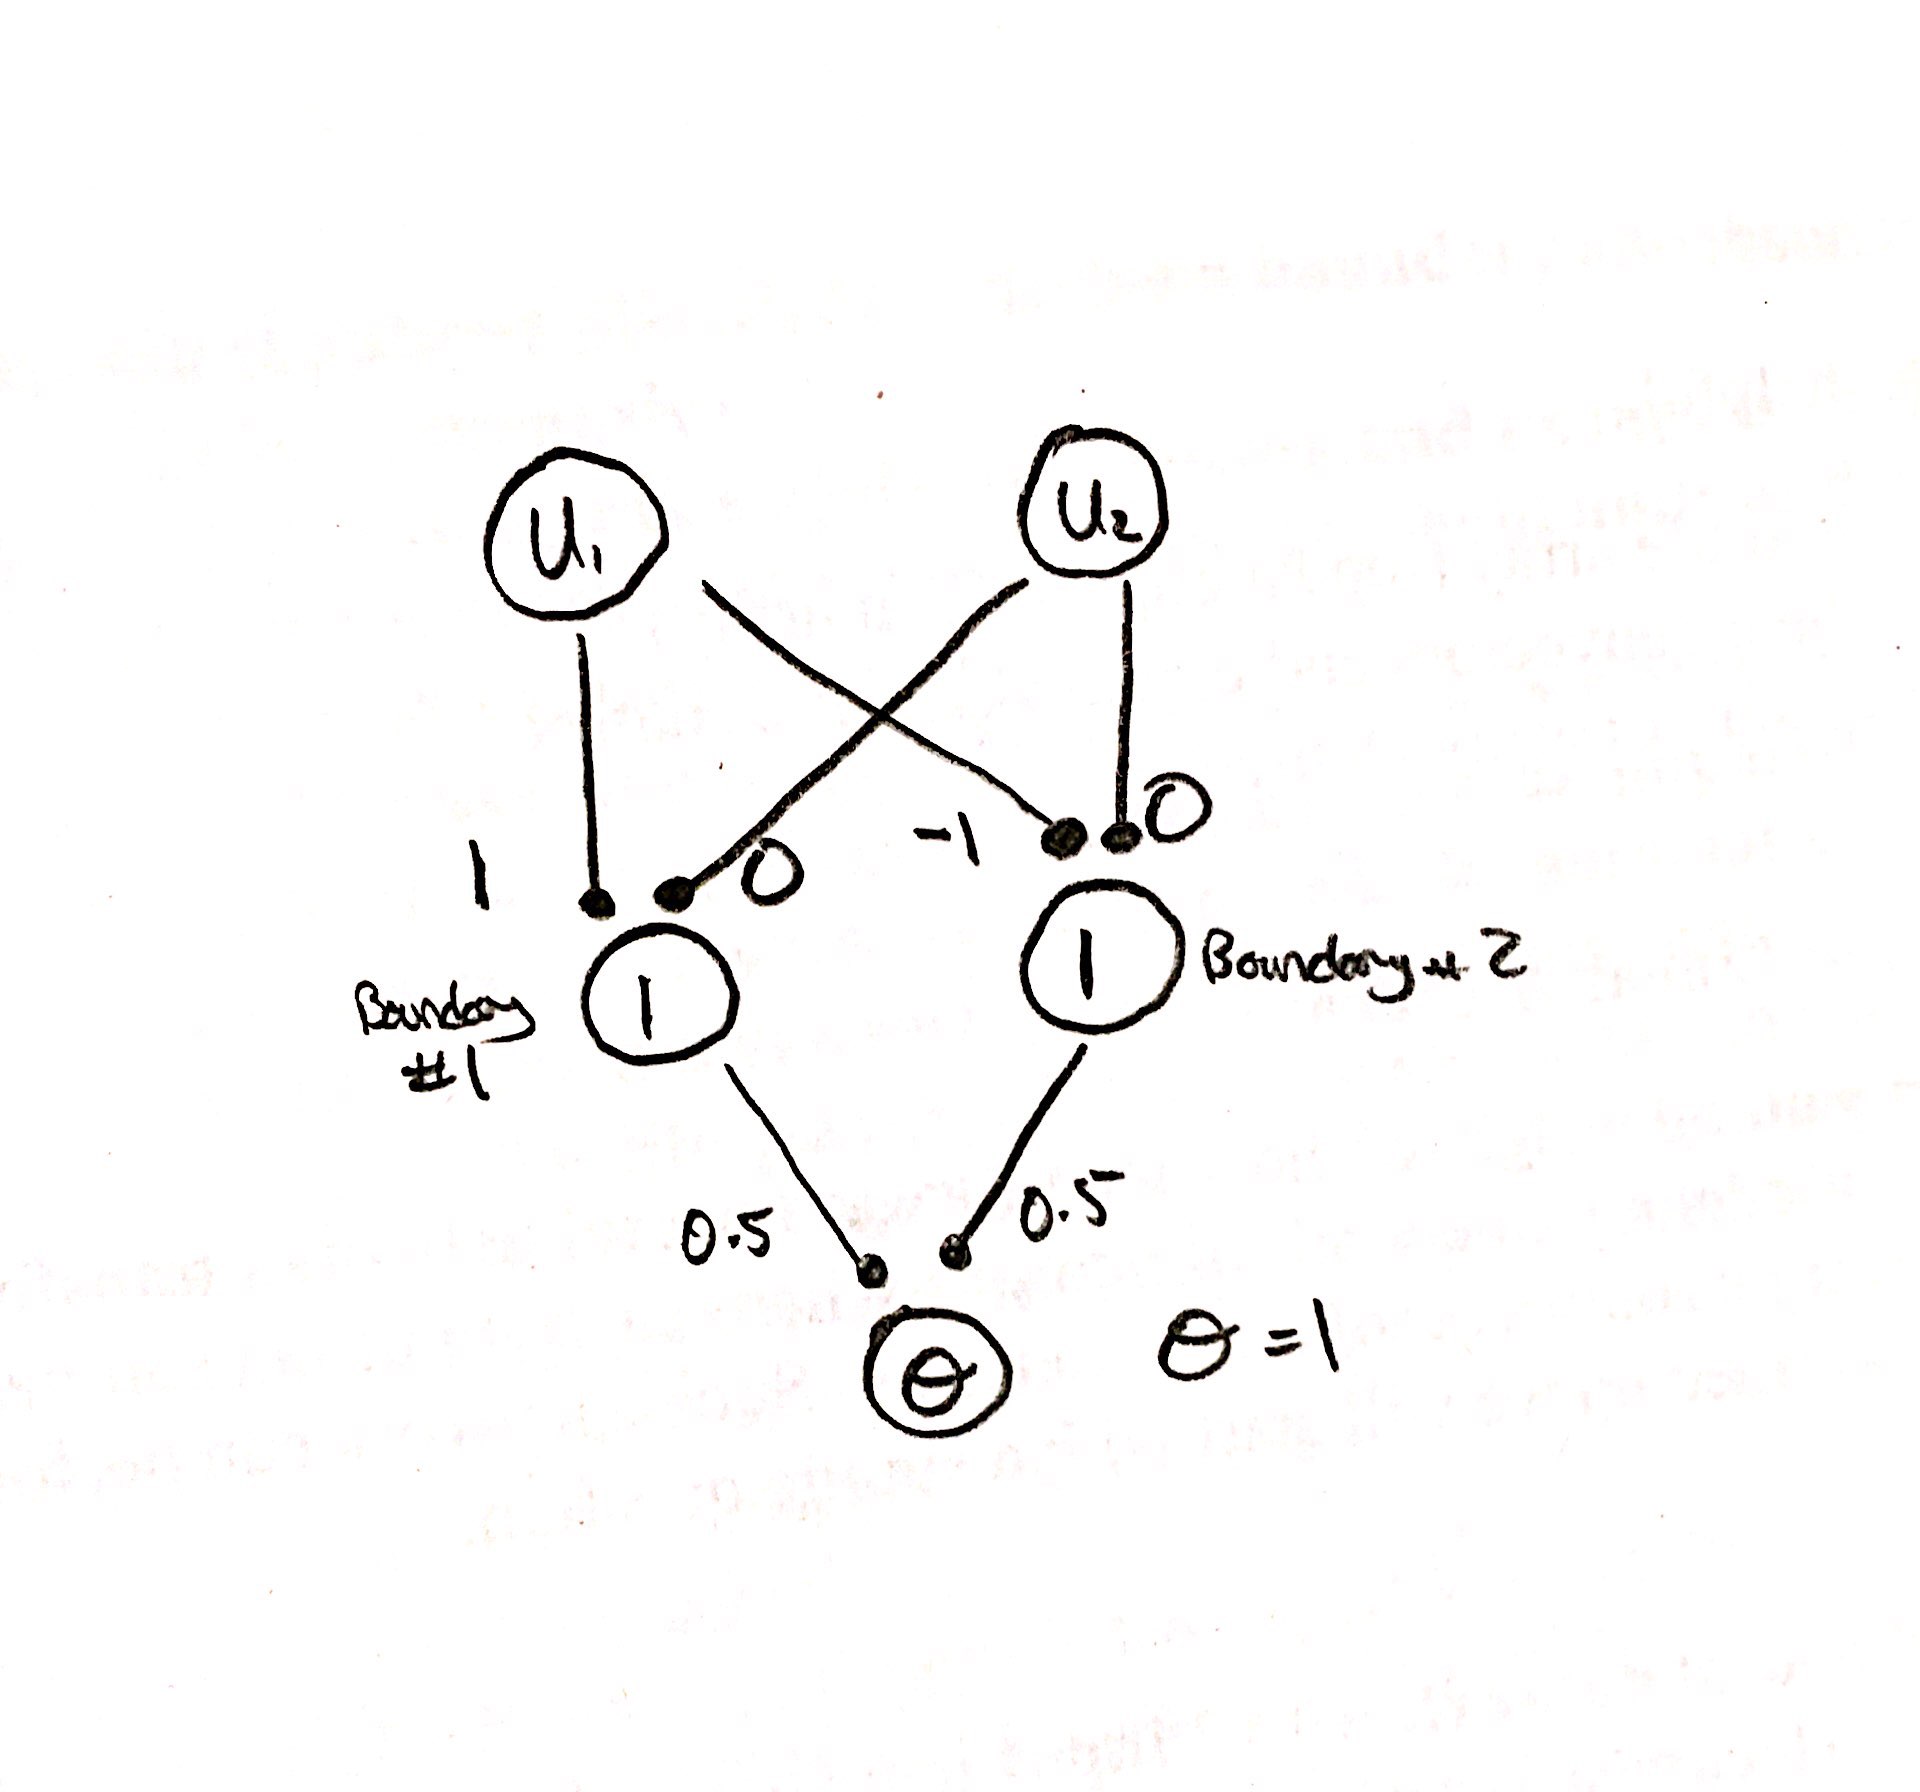 U₁
U₂
1
0
-1
0
1
Boundary
#1
1
Boundary # 2
0.5
0.5
θ
θ = 1